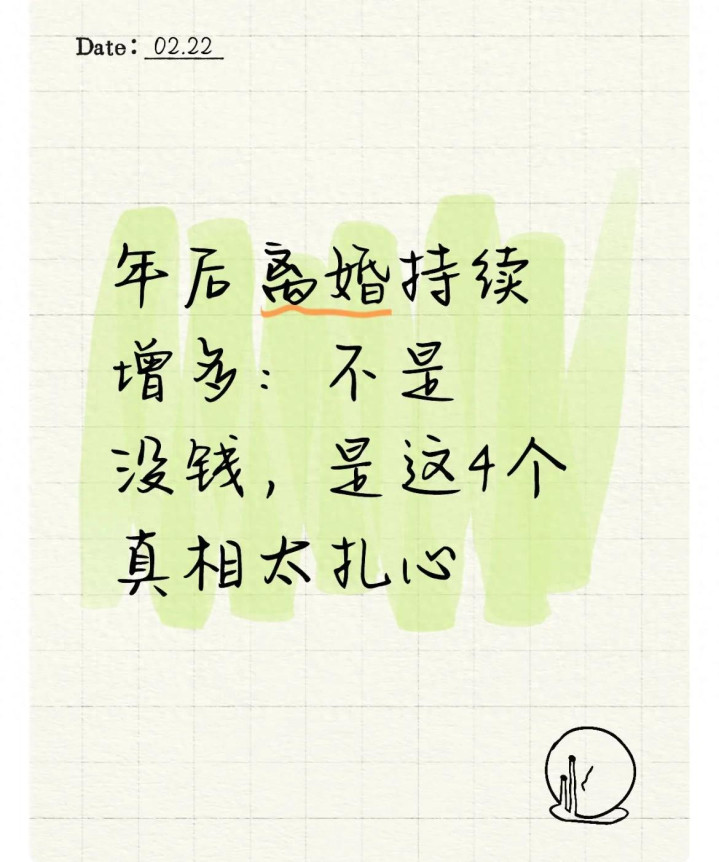 Date: 02.22
年后离婚持续
增多：不是
没钱，是这4个
真相太扎心